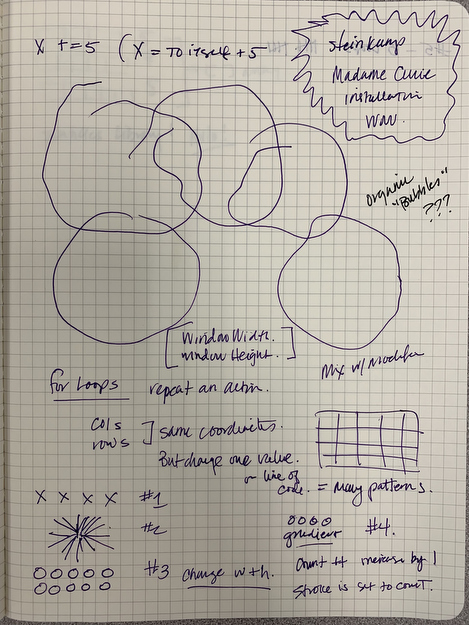 X += 5 (X = to itself + 5
Steinkamp
Madame Curie
installation
organic
"Bubbles"
???
Window Width.
Window Height.
Mix w/
for Loops repeat an action.
cols
rows
same coordinates.
But change one value.
or line of
code. = Many patterns.
X X X X #1
#2
gradient #4.
#3 change w + h.
count # increase by 1
stroke is set to count.